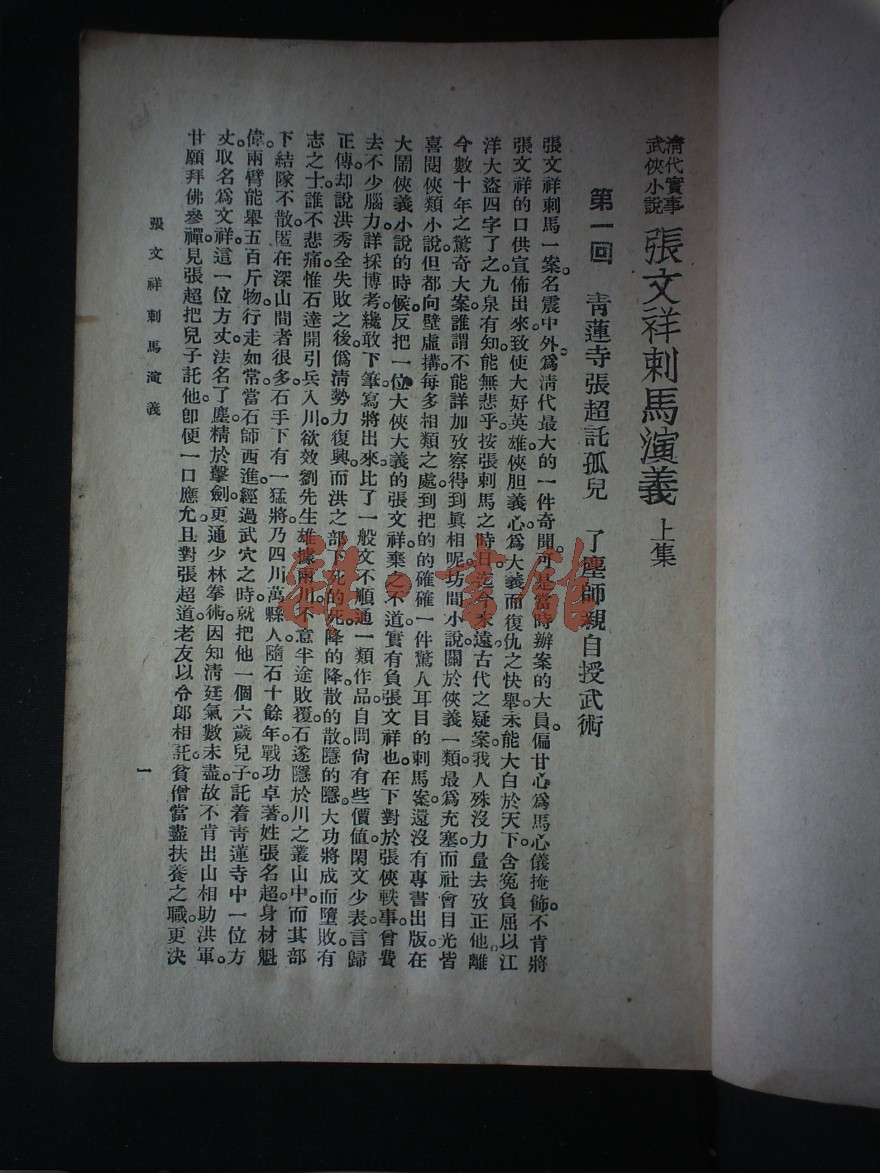 清代實事
武俠小說
張文祥刺馬演義 上集
第一回 青蓮寺張超託孤兒 了塵師親自授武術
張文祥刺馬一案。名震中外。爲清代最大的一件奇聞。可是當時辦案的大員。偏甘心爲馬心儀掩飾。不肯將
張文祥的口供宣佈出來。致使大好英雄俠胆義心。爲大義而復仇之快舉。未能大白於天下。含冤負屈。以江
洋大盜四字了之。九泉有知。能無悲乎。按張刺馬之時日。迄今未遠。古代之疑案。我人殊沒力量去攷正他。離
今數十年之驚奇大案。誰謂不能詳加攷察。得到真相呢。坊間小說。關於俠義一類。最爲充塞。而社會目光。皆
喜閱俠類小說。但都向壁虛搆。每多相類之處。到把的的確確一件驚人耳目的刺馬案。還沒有專書出版。在
大鬧俠義小說的時候。反把一位大俠大義的張文祥。棄之不道。實有負張文祥也。在下對於張俠軼事。曾費
去不少腦力。詳採博考。纔敢下筆。寫將出來。比了一般文不順通一類作品。自問尙有些價値。閑文少表。言歸
正傳。却說洪秀全失敗之後。僞清勢力復興。而洪之部下。死的死。降的降。散的散。隱的隱。大功將成而墮敗。有
志之士。誰不悲痛。惟石達開引兵入川。欲效劉先生雄據兩川。不意半途敗覆。石遂隱於川之叢山中。而其部
下結隊不散。匿在深山間者很多。石手下有一猛將。乃四川萬縣人。隨石十餘年。戰功卓著。姓張名超。身材魁
偉。兩臂能舉五百斤物。行走如常。當石師西進。經過武穴之時。就把他一個六歲兒子。託着青蓮寺中一位方
丈。取名爲文祥。這一位方丈。法名了塵。精於擊劍。更通少林拳術。因知清廷氣數未盡。故不肯出山相助洪軍。
甘願拜佛參禪。見張超把兒子託他。卽便一口應允。且對張超道。老友以令郎相託。貧僧當盡扶養之職。更決
張文祥刺馬演義
一